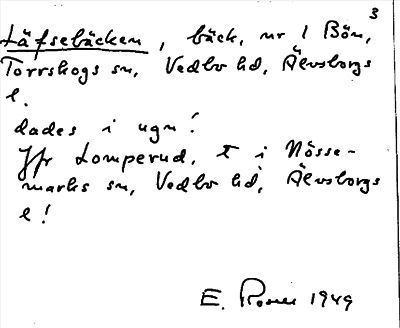 3
Läfsebäcken, bäck, nr 1 Bön,
Torrskogs sn, Vedbo hd, Älvsborgs
l.
dades i ugn!
Jfr Lomperud, t i Nösse-
marks sn, Vedbo hd, Älvsborgs
l!
E. 1949